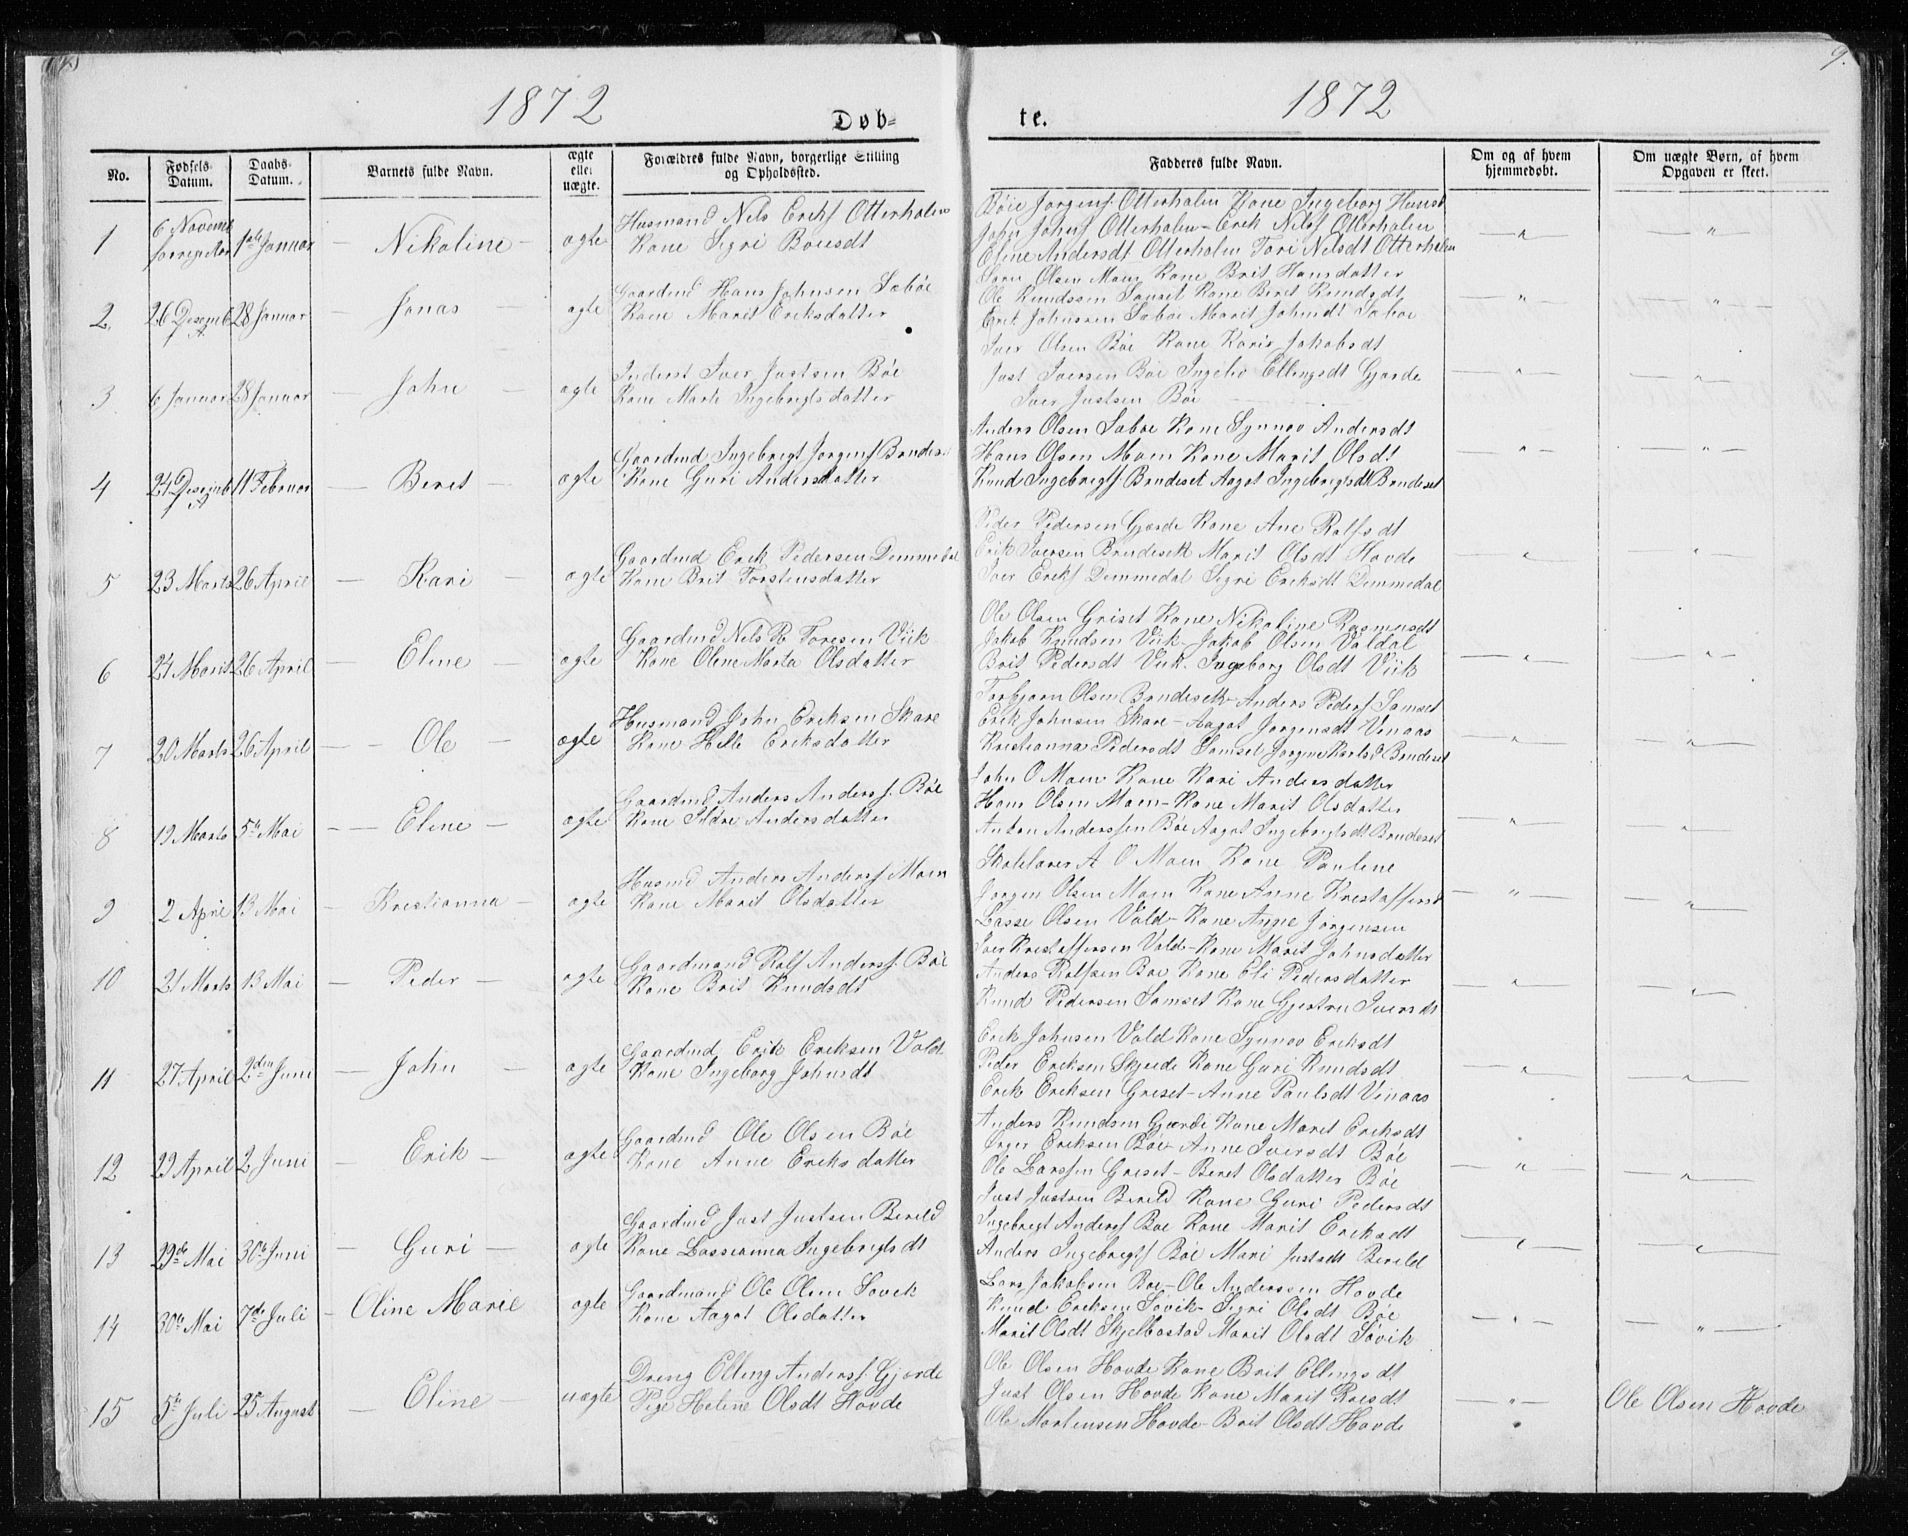 9.
1872
1872
Døb-
te.
No.
Fødsels Datum.
Daabs-Datum.
Barnets fulde Navn.
ægte eller uægte.
Forældres fulde Navn, borgerlige Stilling og Opholdssted.
Fadderes fulde Navn.
Om og af hvem hjemmedøbt.
Om uægte Børn, af hvem Opgaven er skeet.
1 6 Novemb forrige Aar 1ste Januar Nikoline ægte
Husmand Nils Eriks. Otterhalen
Kone Sigri Boiesdt
Böie Jorgens. Otterhalen Kone Ingeborg
John Johns Otterhalen - Erik Nilss Otterhalen
Eline Andersdt Otterhalen Tori Nelsdt Otterhalen
2 26 Desemb 28 Januar Jonas ægte
Gaardmd Hans Johnsen Sæböe
Kone Marit Eriksdatter
Olsen Moen Kone Brit Hansdatter
Ole Knudssen Kone Beret Knudsdt
Erik Johnssen Sæböe Marit Johnsdt Sæböe
3 6 Januar 28 Januar John ægte
Inderst Iver Justsen Böe
Kone Marte Ingebrigtsdatter
Iver Olsen Böe Kone Karis Jakobsdt
Just Iversen Böe Ingebor Ellingsdt Gjærde
Iver Justsen Böe
4 24 Desemb 11 Februar Beret ægte
Gaardmd Ingebrigt Jorgens Brudeset
Kone Guri Andersdatter
Anders Olsen Sæböe Kone Synnøv Andersdt
Hans Olsen Moen Kone Marit Olsdt
Knud Ingebrigts Brudeset Aagot Ingebrigtsdt Brudeset
5 23 Marts 26 April Kari ægte
Gaardmd Erik Pedersen Demmedal
Kone Brit Torstensdatter
Peder Pedersen Gjærde Kone Ane Rolfsdt
Erik Iversen Brudeseth Marit Olsdt Hovde
Iver Eriks Demmedal Sigri Eriksdt Demmedal
6 24 Marts 26 April Eline ægte
Gaardmd Nels P. Toresen Viik
Kone Olene Marta Olsdatter
Ole Olsen Griset Kone Nikoline Rasmusdt
Jakob Knudsen Viik - Jakob Olsen Valdal
Brit Pedersdt Viik. Ingeborg Olsdt Viik
7 20 Marts 26 April Ole ægte
Husmand John Eriksen Skare
Kone Helle Eriksdatter
Torbjorn Olsen Brudeseth - Anders Peders Samset
Erik Johnsen Skare - Aagot Jorgensdt Vinaas
Kristianna Pedersdt Samset Brudeset
8 19 Marts 5te Mai Eline ægte
Gaardmd Anders Anderss. Böe
Kone Sidre Andersdatter
John O Moen Kone Kari Andersdatter
Hans Olsen Moen - Kone Marit Olsdatter
Anton Anderssen Böe Aagot Ingebrigtsdt Brudeset
9 2 April 13 Mai Kristianna ægte
Husmd Anders Anderss Moen
Kone Marit Olsdatter
Skolelærer A O Moen Kone Pauline
Jorgen Olsen Moen Kone Anne Kristaffersd
Lasse Olsen Vold - Kone Anne Jörgensen
10 21 Marts 13 Mai Peder ægte
Gaardmand Rolf Anderss. Böe
Kone Brit Knudsdt
Iver Kristaffersen Vold - Kone Marit Johnsdatter
Anders Rolfsen Böe Kone Eli Pedersdatter
Knud Pedersen Samset Kone Gjertru Iversdt
11 27 April 2den Juni John ægte
Gaardmd Erik Eriksen Vold
Kone Ingeborg Johnsdt
Erik Johnsen Vold Kone Synnov Eriksdt
Peder Eriksen Skjeide Kone Guri Knudsdt
Erik Eriksen Griset - Anne Paulsdt Vinaas
12 29 April 2 Juni Erik ægte
Gaardmd Ole Olsen Böe
Kone Anne Eriksdatter
Anders Knudsen Gjærde Kone Marit Eriksdt
Eriksen Böe Anne Iversdt Böe
Ole Larssen Griset - Beret Olsdatter Böe
13 29de Mai 30te Juni Guri ægte
Gaardmd Just Justsen Berild
Kone Lassianna Ingebrigtsdt
Just Justsen Berild Kone Guri Pedersdt
Ingebrigt Anderss Böe Kone Marit Eriksdt
Anders Ingebrigts Böe Mari Justsdt Berild
14 30te Mai 7de Juli Oline Marie ægte
Gaardmand Ole Olsen Sovik
Kone Aagot Olsdatter
Lars Jakobsen Boe - Ole Anderssen Hovde
Knud Eriksen Sovik - Sigri Olsdt Böe
Marit Olsdt Skjelbostad Marit Olsdt Sövik
15 5te Juli 25 August Eline uægte
Dreng Elling Anderss. Gjærde
Pige Heline Olsdt Hovde
Ole Olsen Hovde Kone Brit Ellingsdt
Just Olsen Hovde Kone Marit Roesdt
Ole Mortensen Hovde - Brit Olsdt Hovde
Ole Olsen Hovde